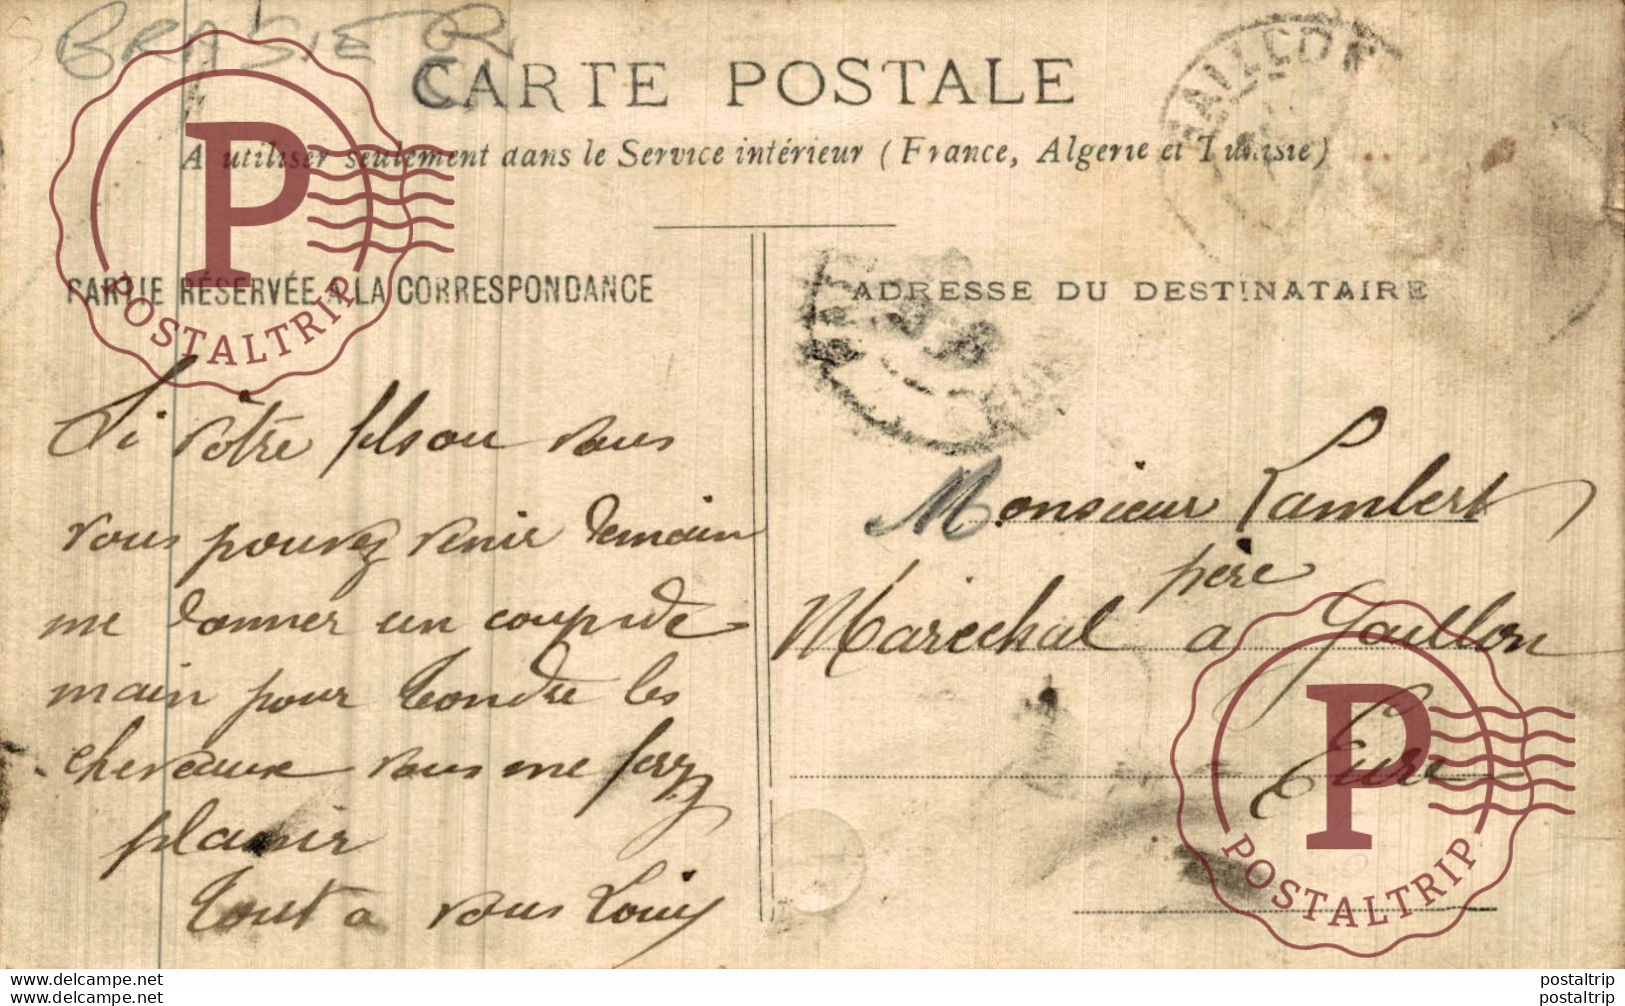 BRASIER
CARTE POSTALE
A utiliser seulement dans le Service intérieur (France, Algerie et Tunisie)
PARTIE RÉSERVÉE A LA CORRESPONDANCE
ADRESSE DU DESTINATAIRE
Si vôtre vous
vous pouvez venir demain
me donner un coup de
main pour tondre les
chevaux vous me ferz
plaisir
tout a vous Louis
Monsieur Lambert
père
Maréchal a Gaillon
Eure
GAILLON
P
POSTALTRIP
P
POSTALTRIP
www.delcampe.net
www.delcampe.net
postaltrip
postaltrip